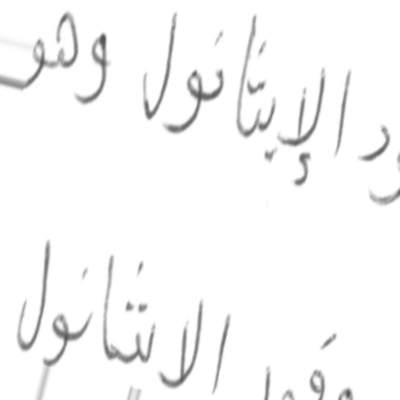 الإيثانول وهو
وقود الايثانول